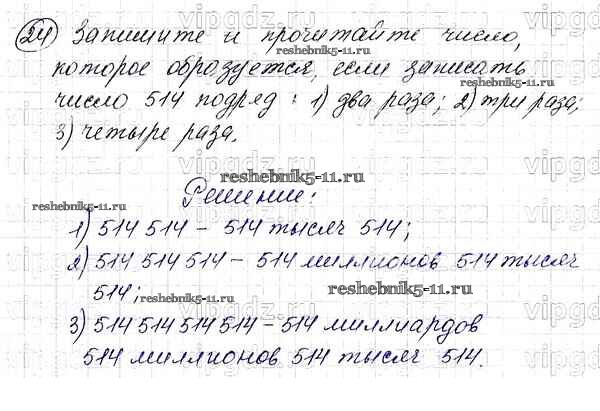 24 Запишите и прочитайте число,
которое образуется, если записать
число 514 подряд: 1) два раза; 2) три раза;
3) четыре раза.
Решение:
1) 514 514 - 514 тысяч 514;
2) 514 514 514 - 514 миллионов 514 тысяч
514;
3) 514 514 514 514 - 514 миллиардов
514 миллионов 514 тысяч 514.
reshebnik5-11.ru
reshebnik5-11.ru
reshebnik5-11.ru
reshebnik5-11.ru
reshebnik5-11.ru
reshebnik5-11.ru
vipgdz.ru